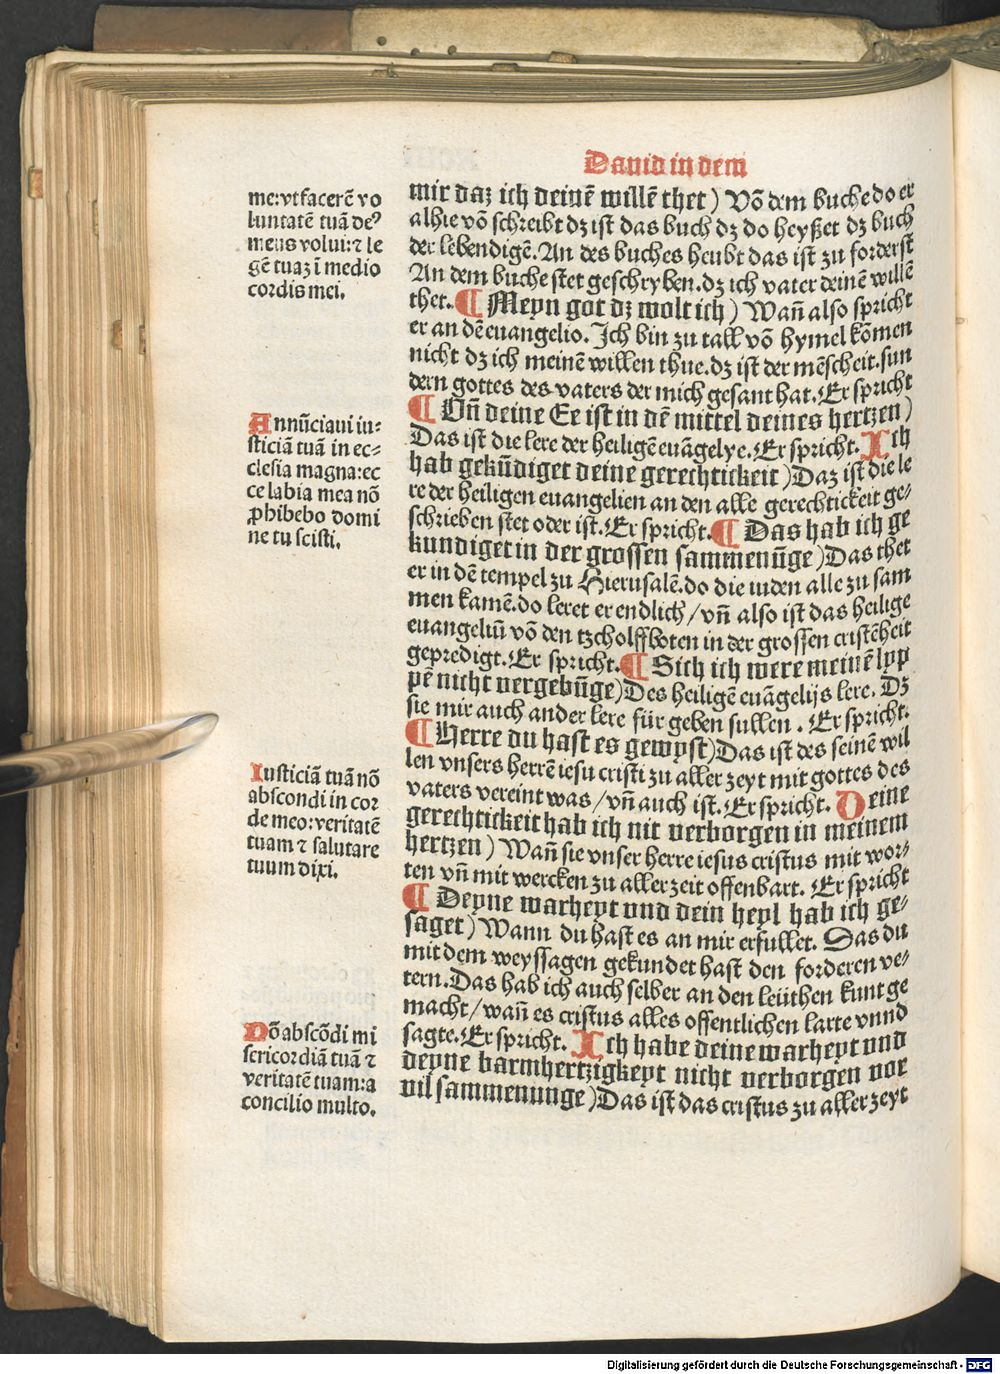 Dauid in dem
me:vt facerē vo
luntatē tuā deꝰ
meus volui:⁊ le
gē tuaʒ ī medio
cordis mei.
Annūciaui iu⸗
sticiā tuā in ec⸗
clesia magna:ec
ce labia mea nō
ꝓhibebo domi
ne tu scisti.
Iusticiā tuā nō
abscondi in cor
de meo:veritatē
tuam ⁊ salutare
tuum dixi.
Nō abscōdi mi
sericordiā tuā ⁊
veritatē tuam:a
concilio multo.
mir daz ich deinē willē thet) Vō dem buche do er
alhie vō schreibt dz ist das buch dz do heyßet dz buch
der lebendigē. An des buches heubt das ist zu forderst
An dem buche stet geschryben. dz ich vater deinē willē
thet. ¶ Meyn got dz wolt ich) Wañ also spricht
er an dē euangelio. Ich bin zu tall vō hymel kōmen
nicht dz ich meinē willen thue. dz ist der mēscheit. sun
dern gottes des vaters der mich gesant hat. Er spricht
¶ Vñ deine Ee ist in dē mittel deines hertzen)
Das ist die lere der heiligē euāgelye. Er spricht. Ich
hab gekūdiget deine gerechtickeit) Daz ist die le
re der heiligen euangelien an den alle gerechtickeit ge⸗
schrieben stet oder ist. Er spricht. ¶ Das hab ich ge
kundiget in der grossen sammenūge) Das thet
er in dē tempel zu Hierusalē. do die iuden alle zu sam
men kamē. do leret er endlich/ vñ also ist das heilige
euangeliū vō den tzcholffboten in der grossen cristēheit
gepredigt. Er spricht. ¶ Sich ich were meinē lyp
pē nicht vergebūge) Des heiligē euāgelijs lere. Dz
sie mir auch ander lere für geben sullen. Er spricht.
¶ Herre du hast es gewyst) Das ist des seinē wil
len vnsers herrē iesu cristi zu aller zeyt mit gottes des
vaters vereint was/ vñ auch ist. Er spricht. Deine
gerechtickeit hab ich nit verborgen in meinem
hertzen) Wañ sie vnser herre iesus cristus mit wor⸗
ten vñ mit wercken zu aller zeit offenbart. Er spricht
¶ Deyne warheyt vnd dein heyl hab ich ge⸗
saget) Wann du hast es an mir erfullet. Das du
mit dem weyssagen gekundet hast den forderen ve⸗
tern. Das hab ich auch selber an den leüthen kunt ge
macht/ wañ es cristus alles offentlichen larte vnnd
sagte. Er spricht. Ich habe deine warheyt vnd
deyne barmhertzigkeyt nicht verborgen vor
vil sammenunge) Das ist das cristus zu aller zeyt
Digitalisierung gefördert durch die Deutsche Forschungsgemeinschaft - DFG